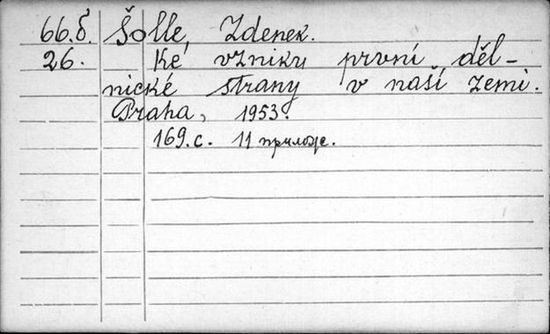 66.б. Šolle, Zdenek.
26. Ké vzniku první děl-
nické strany v naší zemi.
Praha, 1953.
169.с. 11 прилож.